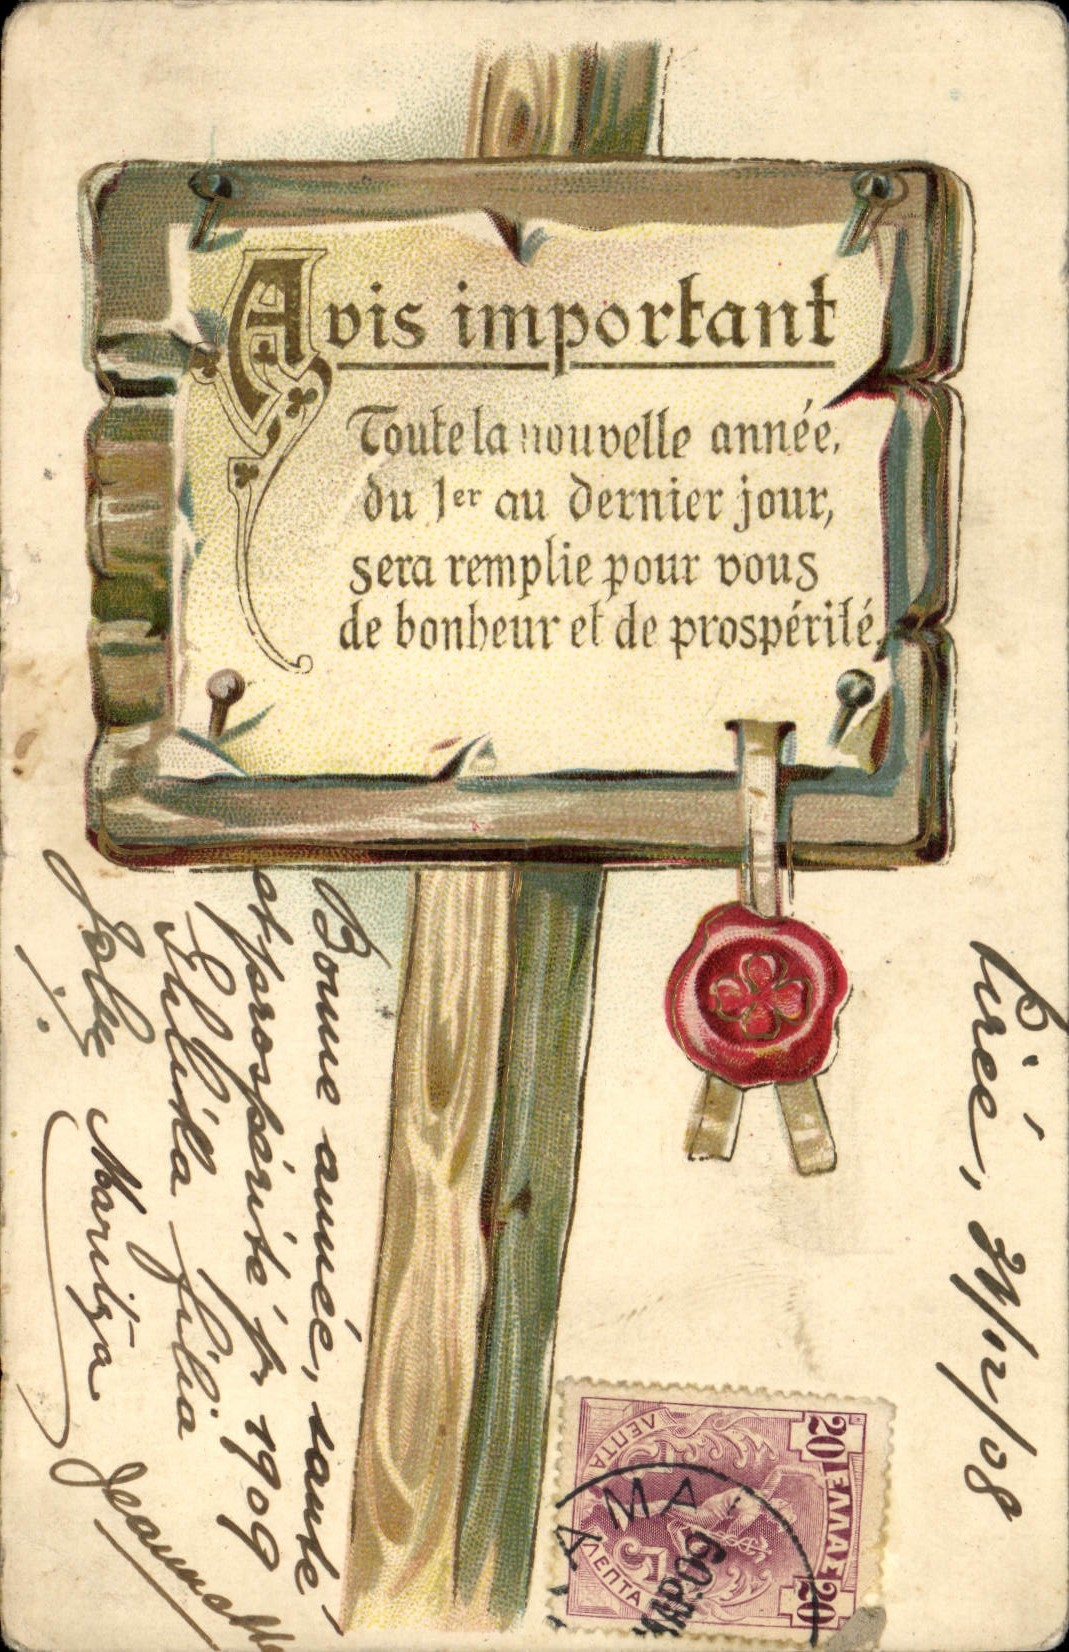 Avis important
Toute la nouvelle année,
du 1er au dernier jour,
sera remplie pour vous
de bonheur et de prospérité.
Pirée, 21/12/08
Bonne année, santé
et prospérité pr 1909
filia
Maritza
Jeannette
20 ΕΛΛΑΣ 20
ΛΕΠΤΑ
ΛΕΠΤΑ